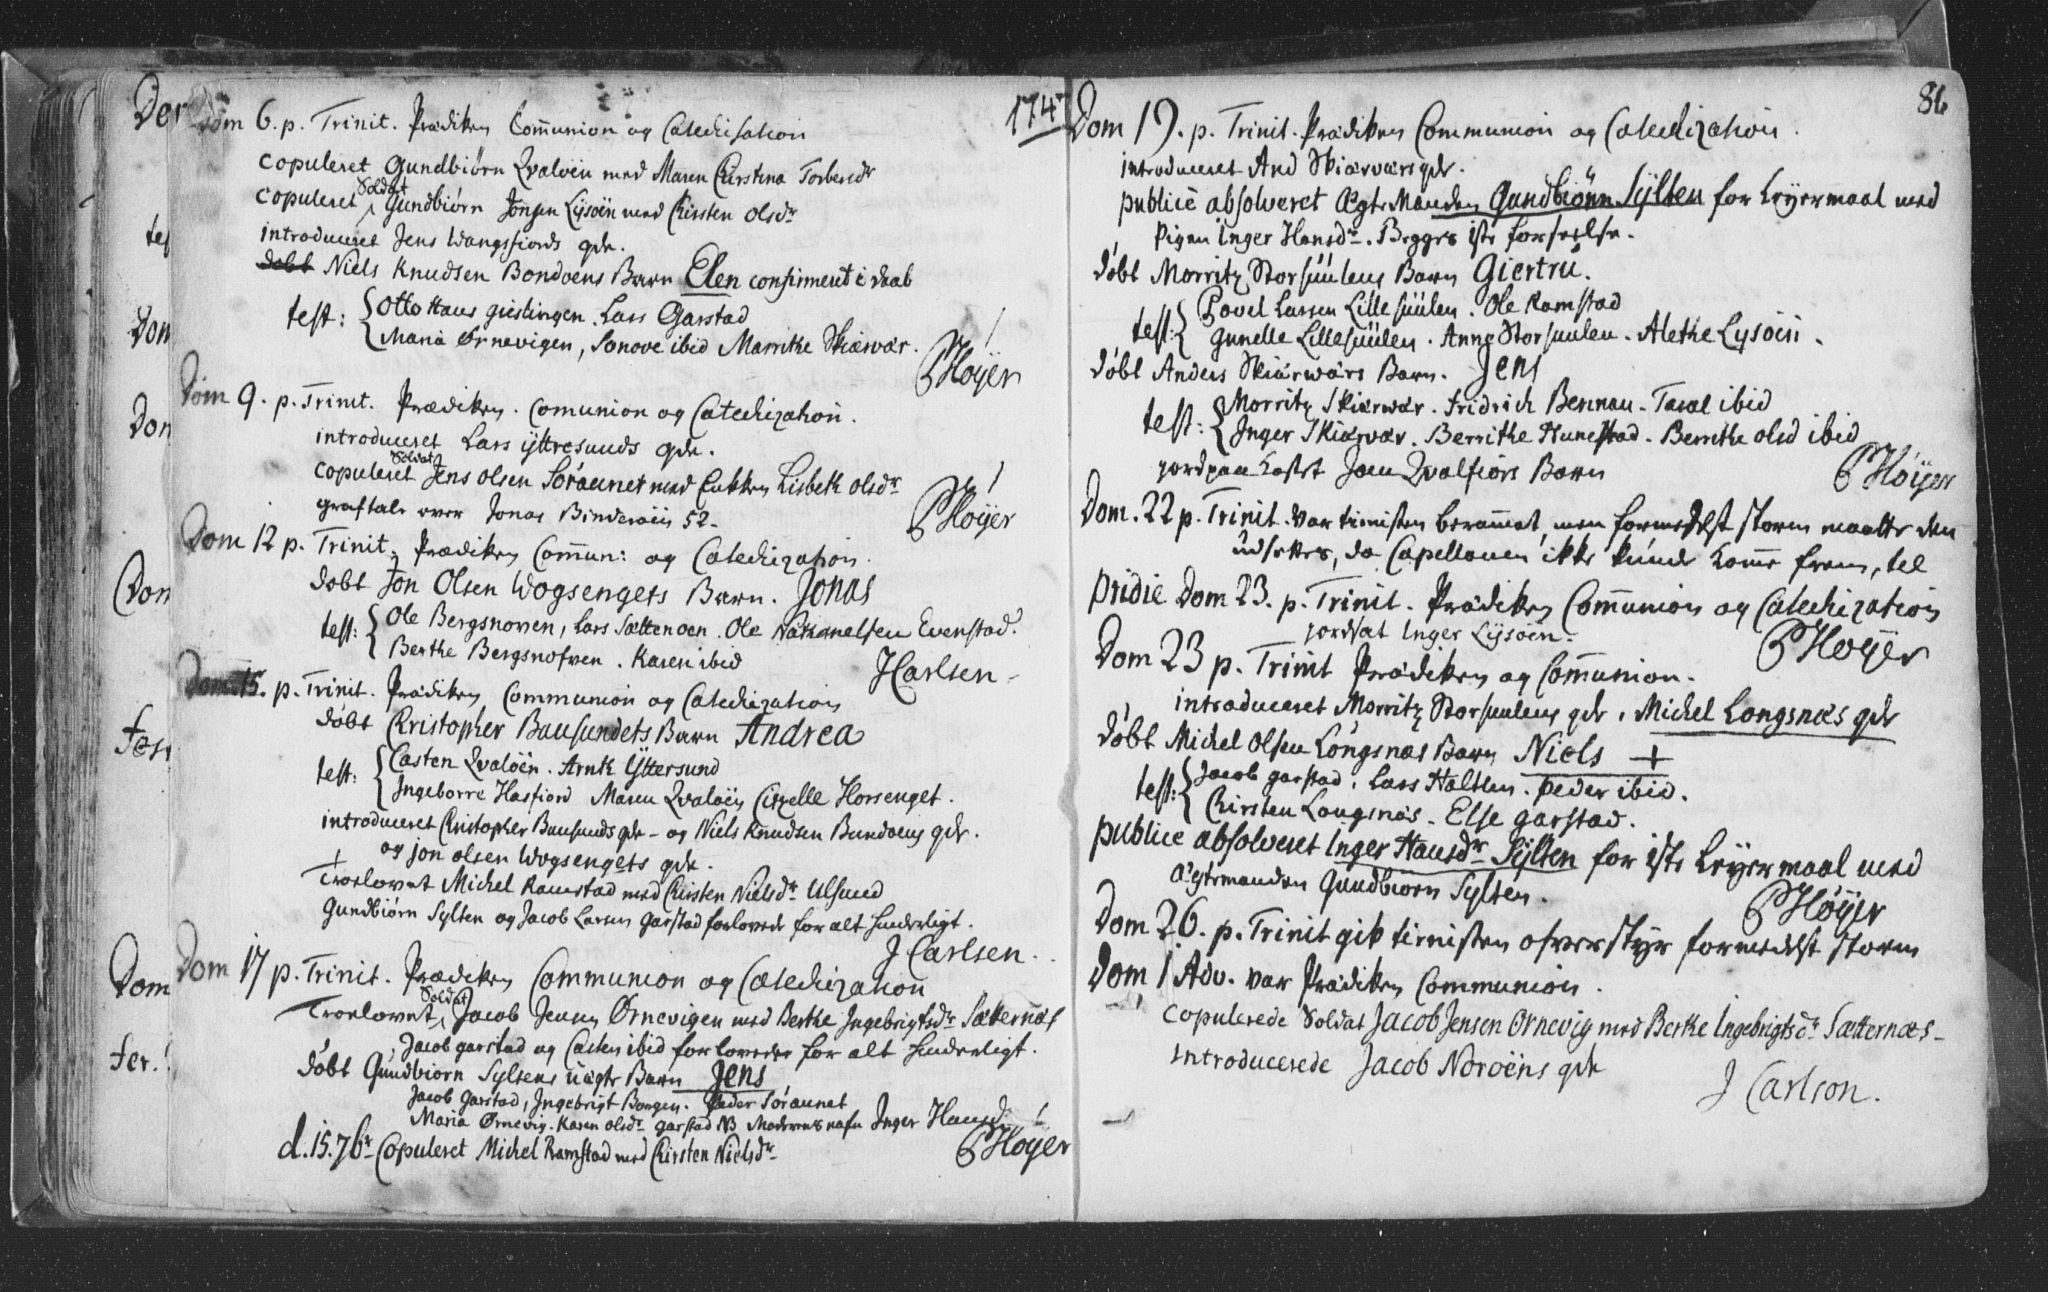 1747
Dom 6. p. Trinit. Prædiken Communion og Catechisation
copuleret Gundbiørn Qvaløen med Maren Christina Torbersdr
copuleret Soldat Gundbiørn Jonsen Lysøen med Kirsten Olsdr
introduceret Jens Wangsfiords qde.
døbt Niels Knudsen Bondøens Barn Elen confirmeret i daab
test: Otto Haus gieslingen. Lars Garstad
Maria Ørnevigen, Sonove ibid Marrithe Skiærvær.
PHøyer
Dom 9. p. Trinit. Prædiken. Comunion og Catechization.
introduceret Lars Yttresunds qde.
copuleret Soldat Jens Olsen Søraunet med Enkken Lisbeth Olsdr
graftale over Jonas Binderøiis 52.
PHøyer
Dom 12 p. Trinit. Prædiken Commun: og Catechization.
døbt Jon Olsen Wogsengets Barn. Jonas
test: Ole Bergsnoven, Lars Sættenoen. Ole Nathanelsen Evenstad.
Berthe Bergsnofven. Karen ibid
JCarlsen
Dom. 15. p. Trinit. Prædiken Communion og Catechization
døbt Christopher Bausundets Barn Andrea
test: Casten Qvaløen. Arnt Yttersund
Ingeborre Hasfiord Maren Qvaløen Cizelle Horsenget.
introduceret Christopher Bausunds qde - og Niels Knudsen Bundøens qde.
og jon olsen Wogsengets qde.
+
Troelovet Michel Ramstad med Kirsten Nielsdr Ulsund
Gundbiørn Sylten og Jacob Larsen Garstad forlovede for alt hinderligt.
J Carlsen.
Dom 17 p. Trinit. Prædiken Communion og Catechization
Troelovet Soldat Jacob Jensen Ørnevigen med Berthe Ingebrigtsdr Sætternæs
Jacob garstad og Casten ibid forlovede for alt hinderligt.
døbt Gundbiorn Syltens uægte Barn Jens
Jacob Garstad, Ingebrigt Borgen. Peder Søraunet
Maria Ørnevig. Karen Olsdr garstad NB Moderens nafn Inger Hansdr
d. 15. 7br Copuleret Michel Ramstad med Kirsten Nielsdr
PHøyer
86
Dom 19. p. Trinit. Prædiken Communion og Catechization.
introduceret And Skiærværs qde.
publicè absolveret Ægte Manden Gundbiönn Sylten for Leyermaal med
Pigen Inger Hansdr. Begges 1ste forseelse.
døbt Morritz Storsuulens Barn Giertru.
test: Povel Larsen Lillesuulen. Ole Ramstad
Gunelle Lillesuulen. Anne Storsuulen. Alethe Lysøen.
døbt Anders Skiærværs Barn. Jens
test: Morritz Skiærvær. Fridrich Bennau. Taral ibid
Inger Skiærvær. Berrithe Hunestad. Berrithe olsd ibid
jordpaa kastet Joen Qvalfiors Barn
PHøyer
Dom. 22 p. Trinit. var tienisten berammet, men formedelst storm maatte den
udsettes, da Capellanen ikke kunde komme frem, tel
pridie Dom 23. p. Trinit. Prædiken Communion og Catechization
jordsat Inger Lysøen.
PHøyer
Dom 23 p. Trinit Prædiken og Communion.
introduceret Morritz Storsuulens qde, Michel Longsnæs qde
døbt Michel Olsen Longsnæs Barn Niels +
test: Jacob garstad. Lars Haltlen. peder ibid.
Chirsten Longsnæs. Else garstad.
publicè absolveret Inger Hansdr Sylten for 1ste Leyermaal med
ægtemanden Gundbiorn Sylten.
PHøyer
Dom 26. p. Trinit gik tienisten ofverstyr formedelst storm
Dom 1 Adv. var Prædiken Communion.
copulerede Soldat Jacob Jensen Ornevig med Berthe Ingebrigtsdr Sætternæs
introducerede Jacob Norøens qde
J Carlson.